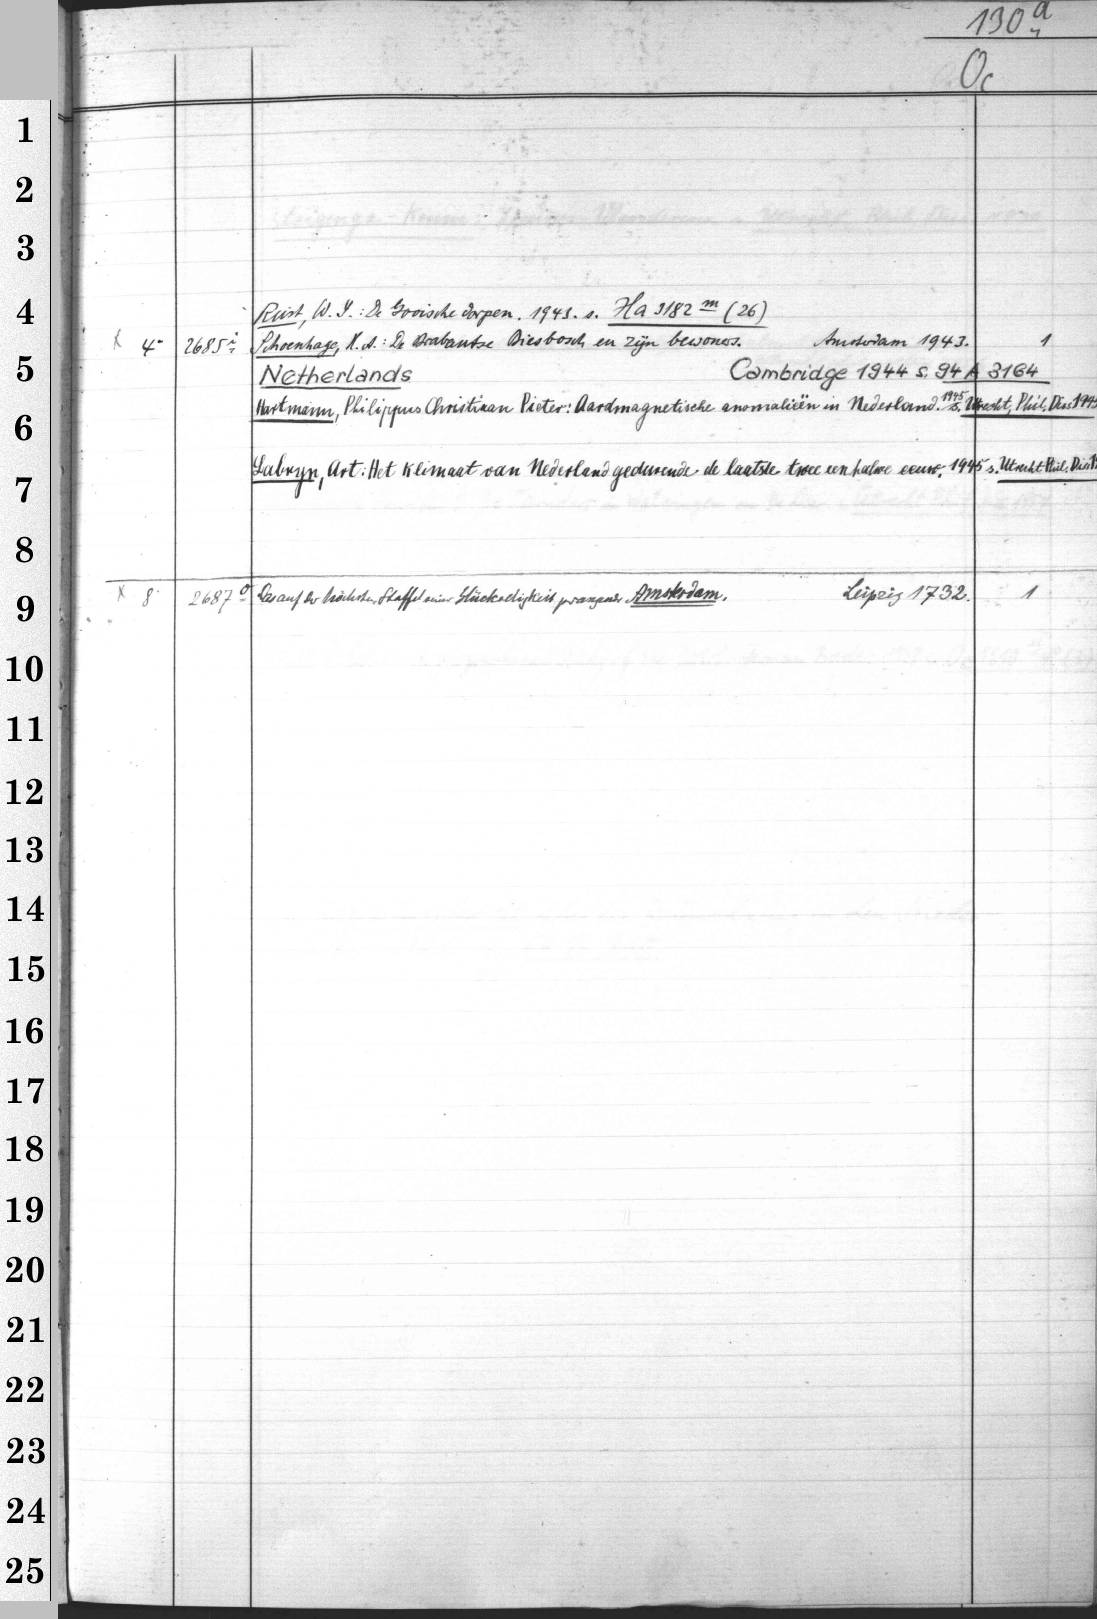 130 a
Oc
1
2
3
4
Rust, W. J.: De Gooische dorpen. 1943. s. Ha 3182 m (26)
x 4° 2685 i Schoenhage, K. A.: De Brabantse Biesbosch en zijn bewoners. Amsterdam 1943. 1
5
Netherlands Cambridge 1944 s. 94 A 3164
Hartmann, Philippus Christiaan Pieter: Aardmagnetische anomalieën in Nederland. 1945 s. Utrecht, Phil. Diss 1945
6
Labryn, Art: Het klimaat van Nederland gedurende de laatste twee een halve eeuw. 1945 s. Utrecht Phil. Diss
7
8
x 8° 2687 a Das auf der höchsten Staffel seiner Glückseligkeit prangende Amsterdam. Leipzig 1732. 1
9
10
11
12
13
14
15
16
17
18
19
20
21
22
23
24
25